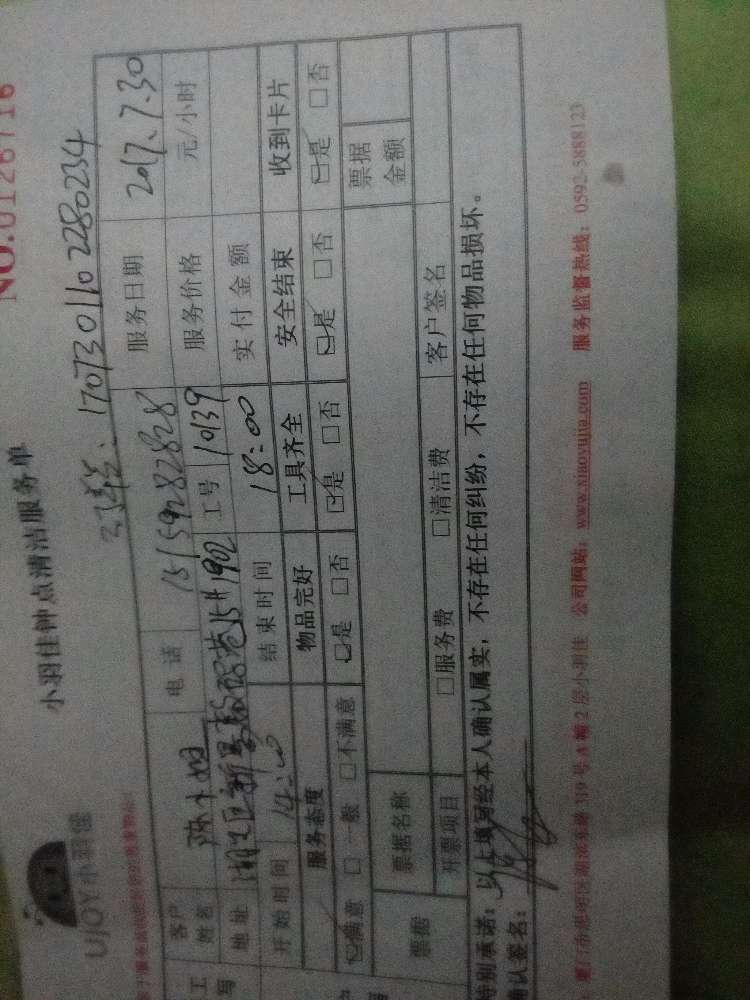 小羽佳钟点清洁服务单
NO.0126716
UJQY小羽佳
单号：1707301102280234
客户姓名 陈小姐 电话 15159282828 服务日期 2017.7.30
地址 湖里区 15#1902 工号 10139 服务价格 元/小时
开始时间 14:00 结束时间 18:00 实付金额
服务态度 物品完好 工具齐全 安全结束 收到卡片
☑满意 □一般 □不满意 ☑是 □否 ☑是 □否 ☑是 □否 ☑是 □否
票据 票据名称 票据金额
开票项目 □服务费 □清洁费 客户签名
特别承诺：以上填写经本人确认属实，不存在任何纠纷，不存在任何物品损坏。
确认签名：
厦门市思明区湖滨东路319号A幢2层小羽佳 公司网站：www.xiaoyujia.com 服务监督热线：0592-5888123